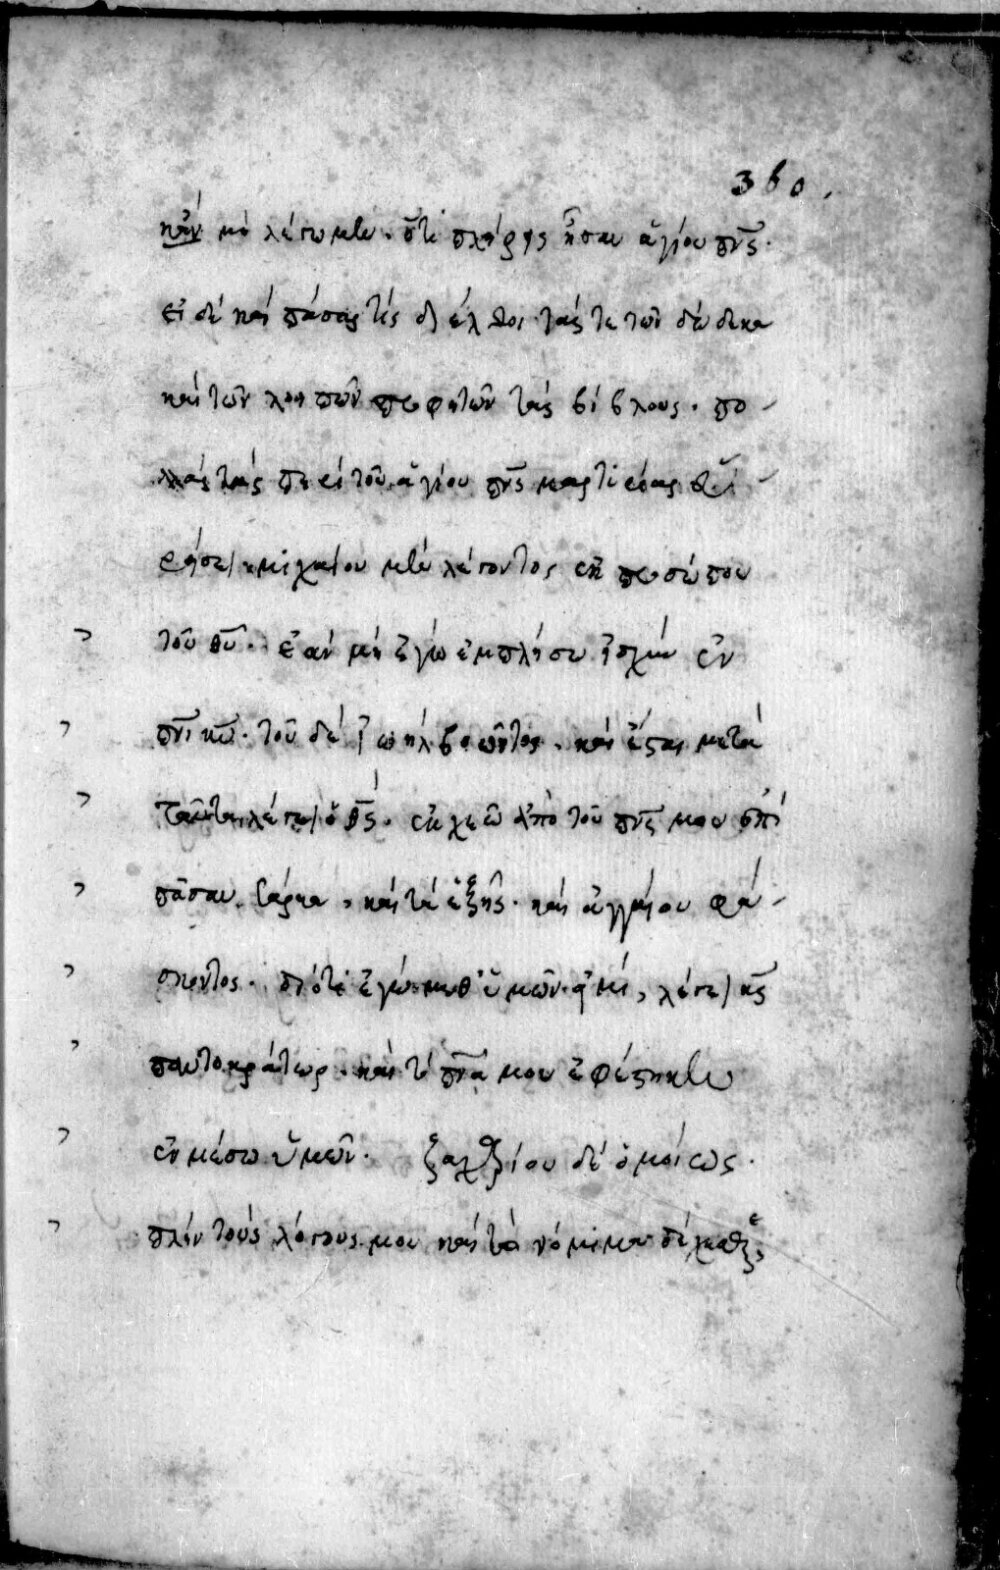 360.
κἂν μὴ λέγωμεν. ὅτι πλήρης ἦσαν ἁγίου πνς.
εἰ δὲ καὶ πάσας τίς διέλθοι τάς τε τῶν δώδεκα
καὶ τῶν λοιπῶν προφητῶν τὰς βίβλους. πο-
λλὰς τὰς περὶ τοῦ ἁγίου πνς μαρτυρίας εὑ-
ρήσει μιχαίου μὲν λέγοντος ἐκ προσώπου
τοῦ θυ. ἐὰν μὴ ἐγὼ ἐμπλήσω ἰσχὺν ἐν
πνι κω. τοῦ δὲ ἰωὴλ βοῶντος. καὶ ἔσται μετὰ
ταῦτα λέγει ὁ θς. ἐκχεῶ ἀπὸ τοῦ πνς μου ἐπὶ
πᾶσαν σάρκα, καὶ τὰ ἑξῆς. καὶ ἀγγαίου φά-
σκοντος. διότι ἐγὼ μεθ' ὑμῶν εἰμι, λέγει κς
παντοκράτωρ. καὶ τὸ πνα μου ἐφέστηκεν
ἐν μέσω ὑμῶν. ζαχαρίου δὲ ὁμοίως.
πλὴν τοὺς λόγους μου καὶ τὰ νόμιμα δέχεσθε,